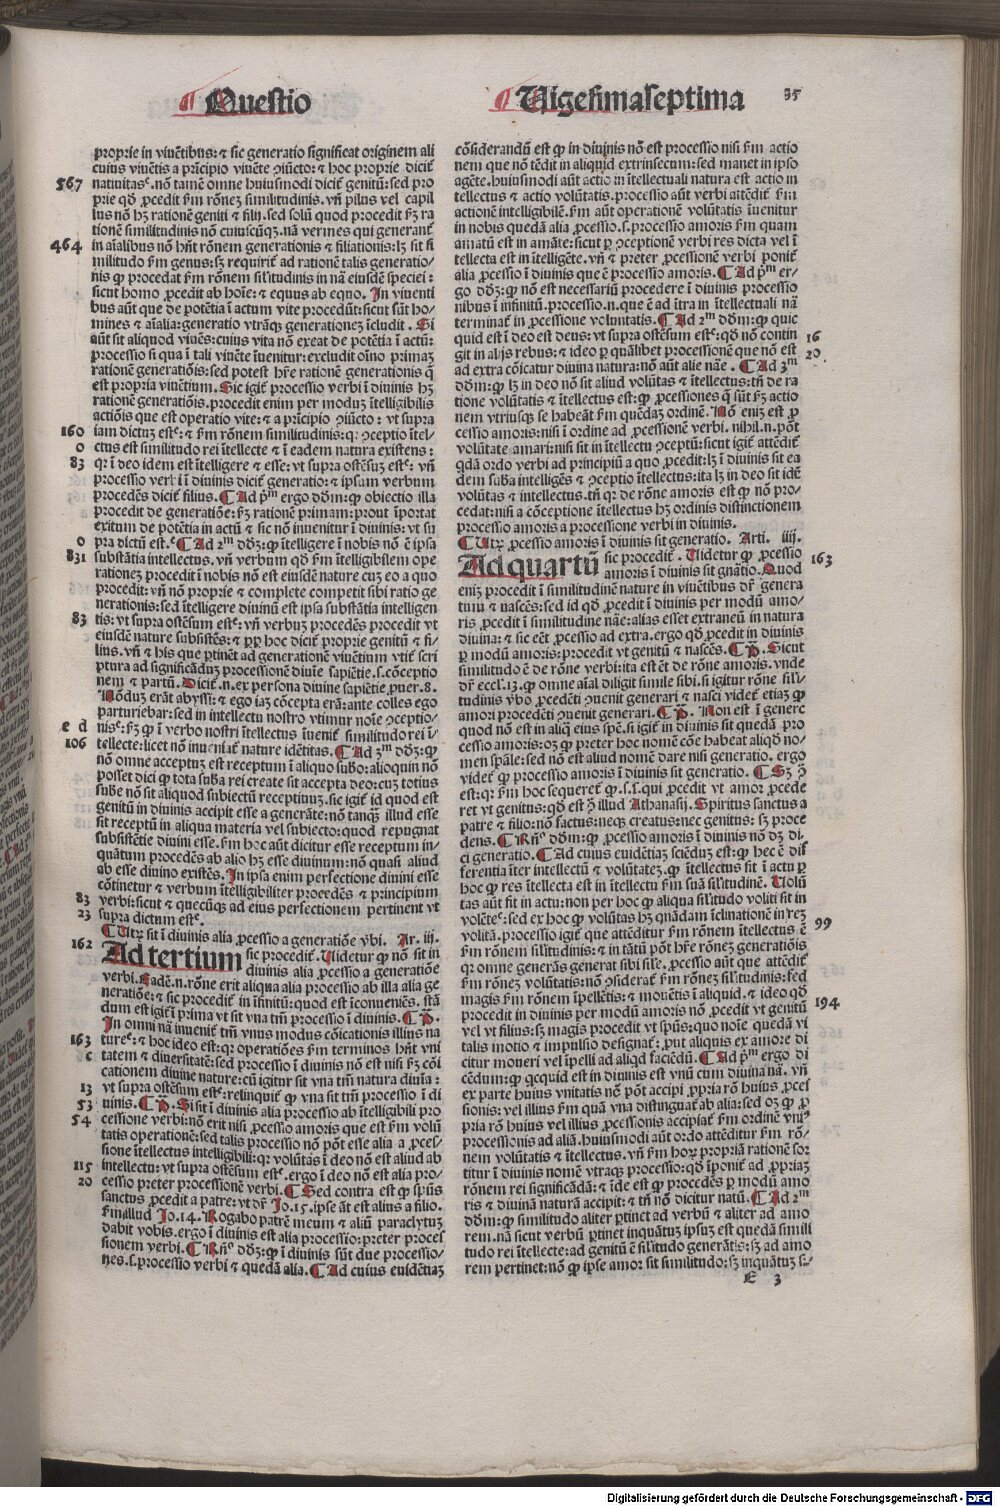 Questio
Uigesimaseptima 35
proprie in viuẽtibus: ⁊ sic generatio significat originem ali
cuius viuẽtis a pͥncipio viuẽte ↄiũcto: ⁊ hoc proprie diciť
567 natiuitasᵉ. nõ tamẽ omne huiusmodi diciť genitũ: sed pro
prie qđ ꝓcedit ẜm rõneʒ similitudinis. vñ pilus vel capil
lus nõ hʒ rationẽ geniti ⁊ filij. sed solũ quod procedit ẜʒ ra
tionẽ similitudinis nõ cuiuscũqʒ. nã vermes qui generanť
464 in aĩalibus nõ hñt rõnem generationis ⁊ filiationis: lʒ sit si
militudo ẜm genus: sʒ requiriť ad rationẽ talis generatio-
nis ꝙ procedat ẜm rõnẽ sil'itudinis in nã eiusdẽ speciei:
sicut homo ꝓcedit ab hoĩe: ⁊ equus ab equo. In viuenti
bus aũt que de potẽtia ĩ actum vite procedũt: sicut sũt ho-
mines ⁊ aĩalia: generatio vtrãqʒ generationeʒ ĩcludit. Si
aũt sit aliquod viuẽs: cuius vita nõ exeat de potẽtia ĩ actũ:
processio si qua ĩ tali viuẽte ĩueniť: excludit oĩno primaʒ
rationẽ generatiõis: sed potest hr̃e rationẽ generationis q̃
est propria viuẽtium. Sic igiť processio verbi ĩ diuinis hʒ
rationẽ generatiõis. procedit enim per moduʒ ĩtelligibilis
actiõis que est operatio vite: ⁊ a pͥncipio ↄiũcto: vt supra
160 iam dictuʒ estᵉ: ⁊ ẜm rõnem similitudinis: qʒ ↄceptio ĩtel-
0 ctus est similitudo rei ĩtellecte ⁊ ĩ eadem natura existens:
83 qʒ ĩ deo idem est ĩtelligere ⁊ esse: vt supra ostẽsuʒ estᵉ: vñ
processio verbi ĩ diuinis diciť generatio: ⁊ ipsum verbum
procedẽs diciť filius. ¶ Ad pᵐ ergo dõm: ꝙ obiectio illa
procedit de generatiõe: ẜʒ rationẽ primam: prout ĩportat
exitum de potẽtia in actũ ⁊ sic nõ inuenitur ĩ diuinis: vt su
0 pra dictũ estᵉ. ¶ Ad 2ᵐ dõʒ: ꝙ ĩtelligere ĩ nobis nõ ẽ ipsa
831 substãtia intellectus. vñ verbum qđ ẜm ĩtelligibilem ope
rationeʒ procedit ĩ nobis nõ est eiusdẽ nature cuʒ eo a quo
procedit: vñ nõ proprie ⁊ complete competit sibi ratio ge
nerationis: sed ĩtelligere diuinũ est ipsa substãtia intelligen
83 tis: vt supra ostẽsum estᵉ: vñ verbuʒ procedẽs procedit vt
eiusdẽ nature subsistẽs: ⁊ ꝓpͥ hoc diciť proprie genitũ ⁊ fi-
lius. vñ ⁊ his que ꝑtinẽt ad generationẽ viuẽtium vtiť scri
ptura ad significãduʒ processionẽ diuine sapiẽtie. s. cõceptio
nem ⁊ partũ. Diciť .n. ex persona diuine sapiẽtie ꝓuer. 8.
Nõduʒ erãt abyssi: ⁊ ego iaʒ cõcepta erã: ante colles ego
parturiebar: sed in intellectu nostro vtimur noĩe ↄceptio-
e d nisᵉ: ẜʒ ꝙ ĩ verbo nostri ĩtellectus ĩueniť similitudo rei ĩ-
106 tellecte: licet nõ inueniať nature idẽtitas. ¶ Ad 3ᵐ dõʒ: ꝙ
nõ omne acceptuʒ est receptum ĩ aliquo suƀo: alioquin nõ
posset dici ꝙ tota suƀa rei create sit accepta deo: cuʒ totius
suƀe nõ sit aliquod subiectũ receptiuuʒ. sic igiť id quod est
genitũ in diuinis accipit esse a generãte: nõ tanqʒ illud esse
sit receptũ in aliqua materia vel subiecto: quod repugnat
subsistẽtie diuini esse. ẜm hoc aũt dicitur esse receptum in-
quãtum procedẽs ab alio hʒ esse diuinum: nõ quasi aliud
ab esse diuino existẽs. In ipsa enim perfectione diuini esse
cõtinetur ⁊ verbum ĩtelligibiliter procedẽs ⁊ principium
83 verbi: sicut ⁊ quecũqʒ ad eius perfectionem pertinent vt
23 supra dictum estᵉ.
¶ Utrʒ sit ĩ diuinis alia ꝓcessio a generatiõe ṽbi. Ar. iij.
162 Ad tertium sic procediť. Uidetur ꝙ nõ sit in
diuinis alia ꝓcessio a generatiõe
verbi. Eadẽ .n. rõne erit aliqua alia processio ab illa alia ge
neratiõe: ⁊ sic procediť in ĩfinitũ: quod est ĩconueniẽs. stã
dum est igiť ĩ prima vt sit vna tm̃ processio ĩ diuinis. ¶ Pͬ.
In omni nã inueniť tm̃ vnus modus cõicationis illius na
163 tureᵉ: ⁊ hoc ideo est: qʒ operatiões ẜm terminos hñt vni
c tatem ⁊ diuersitatẽ: sed processio ĩ diuinis nõ est nisi ẜʒ cõi
cationem diuine nature: cũ igitur sit vna tm̃ natura diuĩa:
13 vt supra ostẽsum estᵉ: relinquiť ꝙ vna sit tm̃ processio ĩ di
53 uinis. ¶ Pͬ. Si sit ĩ diuinis alia processio ab ĩtelligibili pro
54 cessione verbi: nõ erit nisi ꝓcessio amoris que est ẜm volũ
tatis operationẽ: sed talis processio nõ põt esse alia a ꝓces-
sione ĩtellectus intelligibili: qʒ volũtas ĩ deo nõ est aliud ab
115 intellectu: vt supra ostẽsum estᵉ. ergo ĩ deo nõ est alia pro-
20 cessio preter processionẽ verbi. ¶ Sed contra est ꝙ sp̃us
sanctus ꝓcedit a patre: vt dr̃ Jo. 15. ipse aũt est alius a filio.
ẜm illud Jo. 14. Rogabo patrẽ meum ⁊ aliũ paraclytuʒ
dabit vobis. ergo ĩ diuinis est alia processio: preter proces
sionem verbi. ¶ Rñᵒ dõʒ: ꝙ ĩ diuinis sũt due processio-
nes. s. processio verbi ⁊ quedã alia. ¶ Ad cuius euidẽtiaʒ
cõsiderandũ est ꝙ in diuinis nõ est processio nisi ẜm actio
nem que nõ tẽdit in aliquid extrinsecum: sed manet in ipso
agẽte. huiusmodi aũt actio in ĩtellectuali natura est actio in
tellectus ⁊ actio volũtatis. processio aũt verbi attẽdiť ẜm
actionẽ intelligibilẽ. ẜm aũt operationẽ volũtatis ĩuenitur
in nobis quedã alia ꝓcessio. s. processio amoris ẜm quam
amatũ est in amãte: sicut per ↄceptionẽ verbi res dicta vel ĩ
tellecta est in ĩtelligẽte. vñ ⁊ preter ꝓcessionẽ verbi poniť
alia ꝓcessio ĩ diuinis que ẽ processio amoris. ¶ Ad pᵐ er-
go dõʒ: ꝙ nõ est necessariũ procedere ĩ diuinis processio
nibus ĩ infinitũ. processio .n. que ẽ ad ĩtra in ĩtellectuali nã
terminať in ꝓcessione voluntatis. ¶ Ad 2ᵐ dõm: ꝙ quic
quid est ĩ deo est deus: vt supra ostẽsum estᵉ: qđ nõ contin 16
git in alijs rebus: ⁊ ideo per quãlibet processionẽ que nõ est 20
ad extra cõicatur diuina natura: nõ aũt alie nãe. ¶ Ad 3ᵐ
dõm: ꝙ lʒ in deo nõ sit aliud volũtas ⁊ ĩtellectus: tñ de ra
tione volũtatis ⁊ intellectus est: ꝙ ꝓcessiones q̃ sũt ẜʒ actio
nem vtriusqʒ se habeãt ẜm quẽdaʒ ordinẽ. Nõ eniʒ est ꝓ
cessio amoris: nisi ĩ ordine ad ꝓcessionẽ verbi. nihil .n. põt
volũtate amari: nisi sit in ĩtellectu ↄceptũ: sicut igiť attẽdiť
q̃dã ordo verbi ad principiũ a quo ꝓcedit: lʒ ĩ diuinis sit ea
dem suƀa intelligẽs ⁊ ↄceptio ĩtellectus: ita lʒ in deo sit idẽ
volũtas ⁊ intellectus. tñ qʒ de rõne amoris est ꝙ nõ pro-
cedat: nisi a cõceptione ĩtellectus hʒ ordinis distinctionem
processio amoris a processione verbi in diuinis.
¶ Utʒ ꝓcessio amoris ĩ diuinis sit generatio. Arti. iiij.
Ad quartũ sic procediť. Uidetur ꝙ ꝓcessio
amoris ĩ diuinis sit gnãtio. Quod 163
eniʒ procedit ĩ similitudinẽ nature in viuẽtibus dr̃ genera
tuʒ ⁊ nascẽs: sed id qđ ꝓcedit ĩ diuinis per modũ amo-
ris ꝓcedit ĩ similitudine nãe: alias esset extraneũ in natura
diuina: ⁊ sic eẽt ꝓcessio ad extra. ergo qđ ꝓcedit in diuinis
ꝑ modũ amoris: procedit vt genitũ ⁊ nascẽs. ¶ Pͬ. Sicut
similitudo ẽ de rõne verbi: ita est ẽt de rõne amoris. vnde
dr̃ eccl'i. 13. ꝙ omne aĩal diligit simile sibi. si igitur rõne sil'i
tudinis ṽbo ꝓcedẽti ↄuenit generari ⁊ nasci videť etiaʒ ꝙ
amori procedẽti ↄuenit generari. ¶ Pͬ. Non est ĩ genere
quod nõ est in aliq̃ eius spẽ. si igiť in diuinis sit quedã pro
cessio amoris: oʒ ꝙ preter hoc nomẽ cõe habeat aliqđ no-
men spãle: sed nõ est aliud nomẽ dare nisi generatio. ergo
videť ꝙ processio amoris ĩ diuinis sit generatio. ¶ Sʒ ↄͣ
est: qʒ ẜm hoc sequereť ꝙ. s. s. qui ꝓcedit vt amor ꝓcede
ret vt genitus: qđ est ↄͣ illud Athanasij. Spiritus sanctus a
patre ⁊ filio: nõ factus: neqʒ creatus: nec genitus: sʒ proce
dens. ¶ Rñᵒ dõm: ꝙ processio amoris ĩ diuinis nõ dʒ di-
ci generatio. ¶ Ad cuius euidẽtiaʒ sciẽduʒ est: ꝙ hec ẽ dif
ferentia ĩter intellectũ ⁊ volũtateʒ. ꝙ ĩtellectus fit ĩ actu per
hoc ꝙ res ĩtellecta est in ĩtellectu ẜm suã sil'itudinẽ. Uolũ
tas aũt fit in actu: non per hoc ꝙ aliqua sil'itudo voliti sit in
volẽteᶜ: sed ex hoc ꝙ volũtas hʒ quãdam ĩclinationẽ in reʒ
volitã. processio igiť que attẽditur ẜm rõnem ĩtellectus ẽ 99
ẜm rõnem sil'itudinis: ⁊ in tãtũ põt hr̃e rõneʒ generatiõis
qʒ omne generãs generat sibi sil'e. ꝓcessio aũt que attẽdiť
ẜm rõneʒ volũtatis: nõ ↄsiderať ẜm rõneʒ sil'itudinis: sed
magis ẜm rõnem ĩpellẽtis: ⁊ mouẽtis ĩ aliquid. ⁊ ideo qđ
procedit in diuinis per modũ amoris nõ ꝓcedit vt genitũ 194
vel vt filius: sʒ magis procedit vt sp̃us: quo noĩe quedã vi
talis motio ⁊ impulsio designať: put aliquis ex amore di
citur moueri vel ĩpelli ad aliqđ faciẽdũ. ¶ Ad pᵐ ergo di
cẽdum: ꝙ qcquid est in diuinis est vnũ cum diuina nã. vñ
ex parte huius vnitatis nõ põt accipi ꝓpria rõ huius ꝓces
sionis: vel illius ẜm quã vna distinguať ab alia: sed oʒ ꝙ ꝓ
pria rõ huius vel illius ꝓcessionis accipiať ẜm ordinẽ vniꝰ
processionis ad aliã. huiusmodi aũt ordo attẽditur ẜm rõ-
nem volũtatis ⁊ ĩtellectus. vñ ẜm hoꝝ propriã rationẽ sor
titur ĩ diuinis nomẽ vtraqʒ processio: qđ ĩponiť ad ꝓpriaʒ
rõnem rei significãdã: ⁊ ĩde est ꝙ procedẽs per modũ amo
ris ⁊ diuinã naturã accipit: ⁊ tñ nõ dicitur natũ. ¶ Ad 2ᵐ
dõm: ꝙ similitudo aliter ꝑtinet ad verbũ ⁊ aliter ad amo
rem. nã sicut verbũ ꝑtinet inquãtuʒ ipsuʒ est quedã simili
tudo rei ĩtellecte: ad genitũ ẽ sil'itudo generãtis: sʒ ad amo
rem pertinet: nõ ꝙ ipse amor sit similitudo: sʒ inquãtuʒ si-
E 3
Digitalisierung gefördert durch die Deutsche Forschungsgemeinschaft - DFG